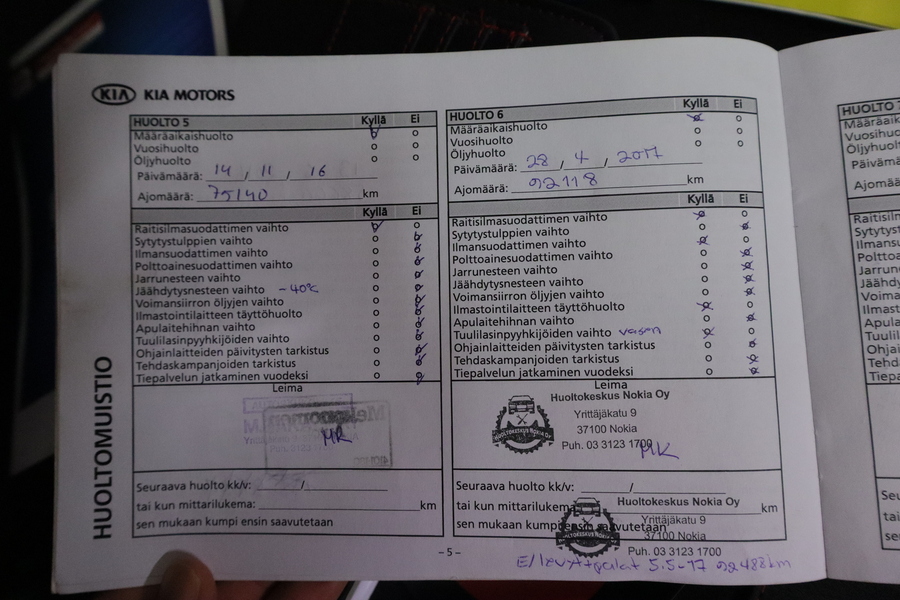 KIA KIA MOTORS
HUOLTO 5 Kyllä Ei
Määräaikaishuolto
Vuosihuolto
Öljyhuolto
Päivämäärä: 14 , 11 , 16
Ajomäärä: 75140 km
Kyllä Ei
Raitisilmasuodattimen vaihto
Sytytystulppien vaihto
Ilmansuodattimen vaihto
Polttoainesuodattimen vaihto
Jarrunesteen vaihto
Jäähdytysnesteen vaihto -40°C
Voimansiirron öljyjen vaihto
Ilmastointilaitteen täyttöhuolto
Apulaitehihnan vaihto
Tuulilasinpyyhkijöiden vaihto
Ohjainlaitteiden päivitysten tarkistus
Tehdaskampanjoiden tarkistus
Tiepalvelun jatkaminen vuodeksi
Leima
MK
Seuraava huolto kk/v: /
tai kun mittarilukema: km
sen mukaan kumpi ensin saavutetaan
HUOLTOMUISTIO
HUOLTO 6 Kyllä Ei
Määräaikaishuolto
Vuosihuolto
Öljyhuolto
Päivämäärä: 28 , 4 , 2017
Ajomäärä: 92118 km
Kyllä Ei
Raitisilmasuodattimen vaihto
Sytytystulppien vaihto
Ilmansuodattimen vaihto
Polttoainesuodattimen vaihto
Jarrunesteen vaihto
Jäähdytysnesteen vaihto
Voimansiirron öljyjen vaihto
Ilmastointilaitteen täyttöhuolto
Apulaitehihnan vaihto
Tuulilasinpyyhkijöiden vaihto vasen
Ohjainlaitteiden päivitysten tarkistus
Tehdaskampanjoiden tarkistus
Tiepalvelun jatkaminen vuodeksi
Leima
Huoltokeskus Nokia Oy
Yrittäjäkatu 9
37100 Nokia
Puh. 03 3123 1700
HUOLTOKESKUS NOKIA Oy
MK
Seuraava huolto kk/v: /
tai kun mittarilukema: km
sen mukaan kumpi ensin saavutetaan
Huoltokeskus Nokia Oy
Yrittäjäkatu 9
37100 Nokia
Puh. 03 3123 1700
HUOLTOKESKUS NOKIA Oy
5.5-17 92488km
-5-
HUOLTO
Määräaika
Vuosihuo
Öljyhuolt
Päivämä
Ajomää
Raitisilm
Sytytyst
Ilmansu
Polttoa
Jarrun
Jäähdy
Voima
Ilmast
Apula
Tuulil
Ohjai
Tehda
Tiepa
Seu
tai
sen